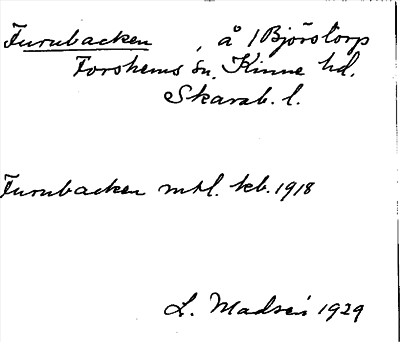 Furubacken , å / Björstorp
Forshems sn. Kinne hd.
Skarab. l.
Furubacken mtl. kb. 1918
L. Madsén 1929